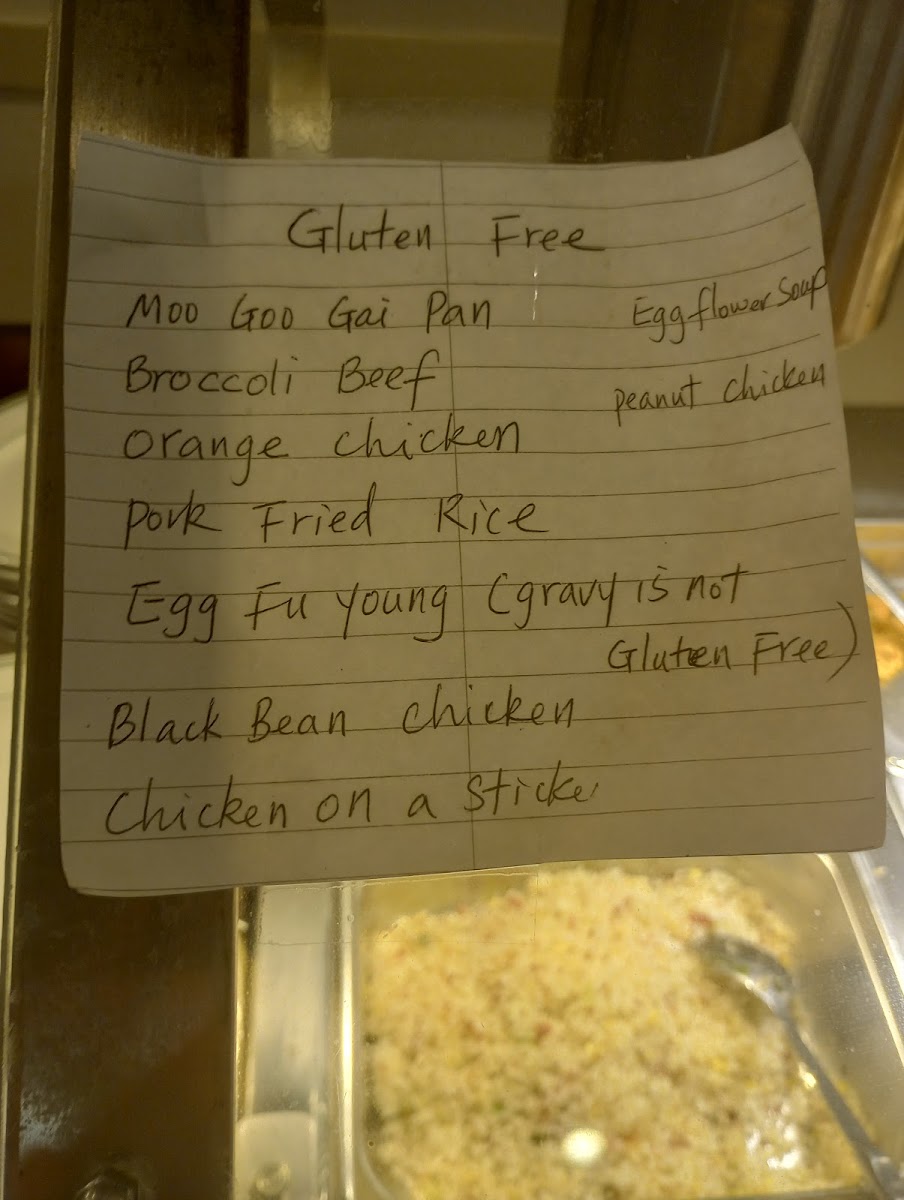 Gluten Free
Moo Goo Gai Pan
Egg flower Soup
Broccoli Beef
peanut chicken
orange chicken
Pork Fried Rice
Egg Fu young (gravy is not
Gluten Free)
Black Bean chicken
Chicken on a Sticke